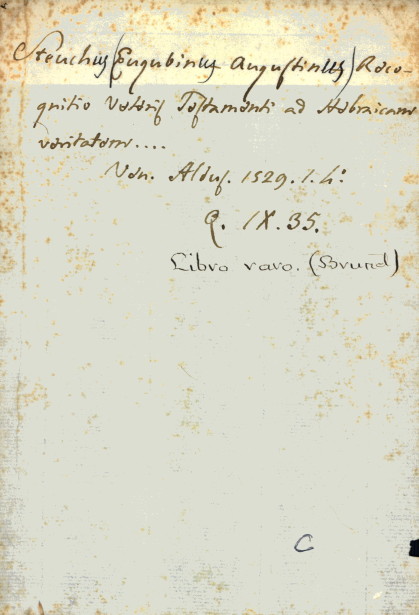 Steuchus (Eugubinus Augustinus) Reco-
gnitio Veteris Testamenti ad Hebraicam
veritatem....
Ven. Aldus. 1529. 1. 4º.
Q. IX. 35.
Libro raro. (Brunet)
C